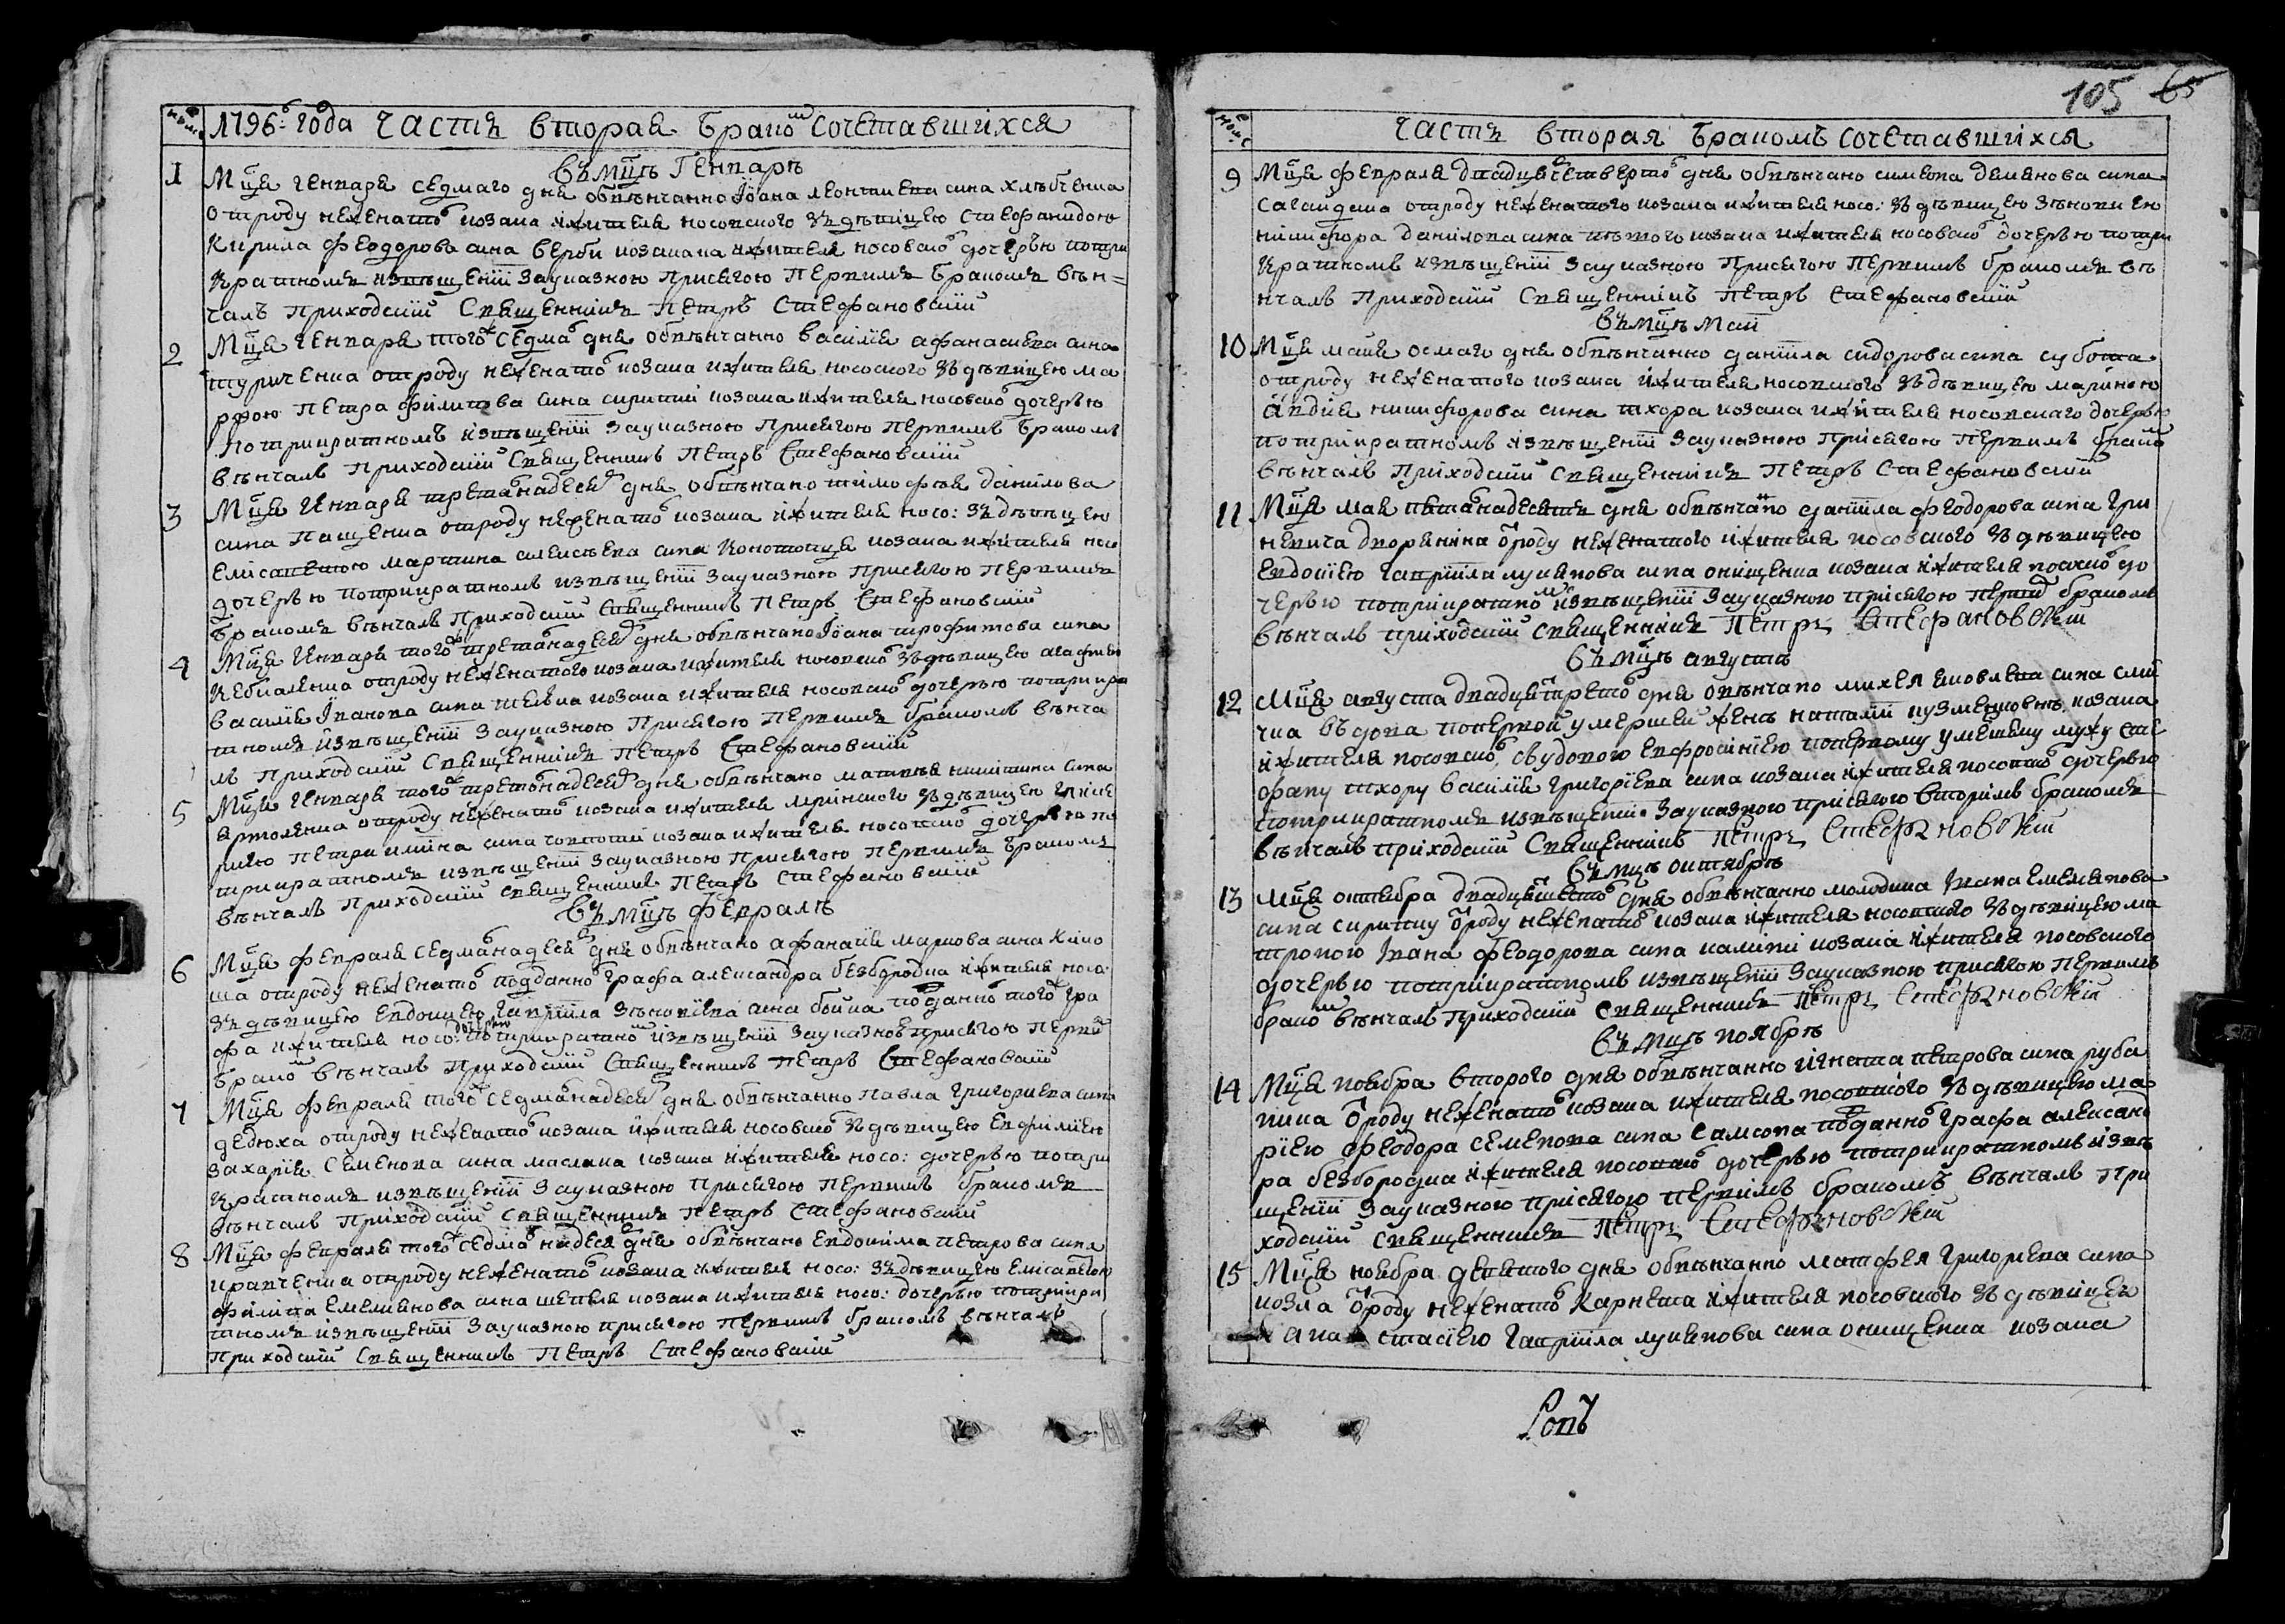 1796: года часть вторая бракомъ сочетавшихся
въ мцѣ генварѣ
1 Мца генваря седмаго дня обвѣнчанно Іоана леонтиева сина хлѣбченка
отроду нежената козака жителя носовского зъ дѣвицею стефанидою
Кирила феодорова сина верби козака жителя носовско дочерю потри
кратномъ извѣщеніи за указною присягою первимъ бракомъ вѣн=
чалъ приходскій священникъ Петръ Стефановскій
2 Мца генваря того седма дня обвѣнчанно василія афанасиева сина
туриченка отроду неженато козака жителя носовского зъ дѣвицею ма
рфою Петра филипова сина козака жителя носовско дочерю
потрикратномъ извѣщеніи за указною присягою первимъ бракомъ
вѣнчалъ приходскій священникъ Петръ Стефановскій
3 Мца генваря третанадесят дня обвѣнчано тимофея данилова
сина пащенка отроду неженато козака жителя носо: зъ дѣвицею
елисаветою мартина алексѣева сина конотопця козака жителя носо
дочерю потрикратномъ извѣщеніи за указною присягою первимъ
бракомъ вѣнчалъ приходскій священникъ Петръ Стефановскій
4 Мца генваря того третанадесят дня обвѣнчано Іоана трофимова сина
отроду неженатого козака жителя носовско зъ дѣвицею агафиею
василия Іванова сина козака жителя носовско дочерю потрикра
тномъ извѣщеніи за указною присягою первимъ бракомъ вѣнча
лъ приходскій священникъ Петръ Стефановскій
5 Мца генваря того третонадесят дня обвѣнчано матвѣя никитина сина
ярмоленка отроду неженато козака жителя мринского зъ дѣвицею глике
риею Петра сина козака жителя носовско дочерю по
трикратномъ извѣщеніи за указною присягою первимъ бракомъ
вѣнчалъ приходскій священникъ Петръ Стефановскій
въ мцѣ февралѣ
6 Мца февраля седманадесят дня обвѣнчано афанасия маркова сина
отроду неженато подданно графа александра безбородка жителя носо
зъ дѣвицею евдокиею гавриіла зѣновіева сина бойка подданно того гра
фа жителя носо: дочерю потрикратно извѣщеніи за указною присягою перви
брако вѣнчалъ приходскій священникъ Петръ Стефановскій
7 Мца февраля того седманадесят дня обвѣнчанно павла григориева сина
дедюха отроду неженато козака жителя носовско зъ дѣвицею евфиміею
захарія семенова сина маслака козака жителя носо: дочерю потри
кратномъ извѣщеніи за указною присягою первимъ бракомъ
вѣнчалъ приходскій священникъ Петръ Стефановскій
8 Мца февраля того седманадеся дня обвѣнчано евдокима петрова сина
кравченка отроду неженато козака жителя носо: зъ дѣвицею елисаветою
филипа емелянова сина козака жителя носо: дочерю потрикра
тномъ извѣщеніи за указною присягою первимъ бракомъ вѣнчалъ
приходскій священникъ Петръ Стефановскій
105
часть вторая бракомъ сочетавшихся
9 Мца февраля двадцать четверто дня обвѣнчано симеона демянова сина
сагайдака отроду неженатого козака жителя носо: зъ дѣвицею зѣновиею
никифора данилова сина козака жителя носовско дочерю потри
кратномъ извѣщеніи за указною присягою первимъ бракомъ вѣ
нчалъ приходскій священникъ Петръ Стефановскій
въ мцѣ маи
10 Мца маия осмаго дня обвѣнчанно даниіла сидорова сина субота
отроду неженатого козака жителя носовского зъ дѣвицею мариною
авдия никифорова сина тхора козака жителя носовскаго дочерю
потрикратномъ извѣщеніи за указною присягою первимъ брако
вѣнчалъ приходскій священникъ Петръ Стефановскій
11 Мца мая пятанадесять дня обвѣнчано даниіла феодорова сина гри
невича дворянина ѿроду неженатого жителя носовского зъ дѣвицею
евдокіею гавриіла лукянова сина онищенка козака жителя носовско до
черю потрикратно извѣщеніи за указною присягою перви бракомъ
вѣнчалъ приходскій священникъ Петръ Стефановскій
въ мцѣ августѣ
12 Мца августа двадцатъ трето дня овѣнчано михея яковлева сина
вдова по первой умершей женѣ наталіи кузменковнѣ козака
жителя носовско, сvдовою евфросиниею по первому умершему мужу сте
фану тхору василія григоріева сина козака жителя носовско дочерю
потрикратномъ извѣщеніи за указною присягою вторимъ бракомъ
вѣнчалъ приходскій священникъ Петръ Стефановскій
въ мцѣ октябрѣ
13 Мца октября двадцать шесто дня обвѣнчанно молодика Івана емелянова
сина ѿроду неженато козака жителя носовского зъ дѣвицею ма
троною Івана феодорова сина козака жителя носовского
дочерю потрикратномъ извѣщеніи за указною присягою первимъ
брако вѣнчалъ приходскій священникъ Петръ Стефановскій
въ мцѣ ноябрѣ
14 Мца ноября второго дня обвѣнчанно игната петрова сина руба
ѿроду неженато козака жителя носовского зъ дѣвицею ма
риею феодора семенова сина самсона подданно графа александ
ра безбородка жителя носовско дочерю потрикратномъ извѣ
щеніи за указною присягою первимъ бракомъ вѣнчалъ при
ходскій священникъ Петръ Стефановскій
15 Мца ноября девятого дня обвѣнчанно матфея григориева сина
козла ѿроду неженато жителя носовского зъ дѣвицею
анастасіею гавриіла лукянова сина онищенка козака